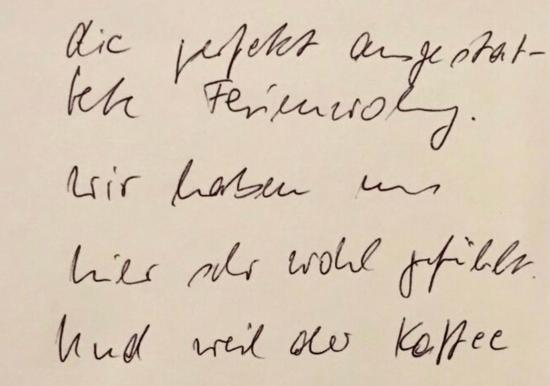 die perfekt ausgestat-
tete Ferienwohng.
Wir haben uns
hier sehr wohl gefühlt.
Und weil der Kaffee